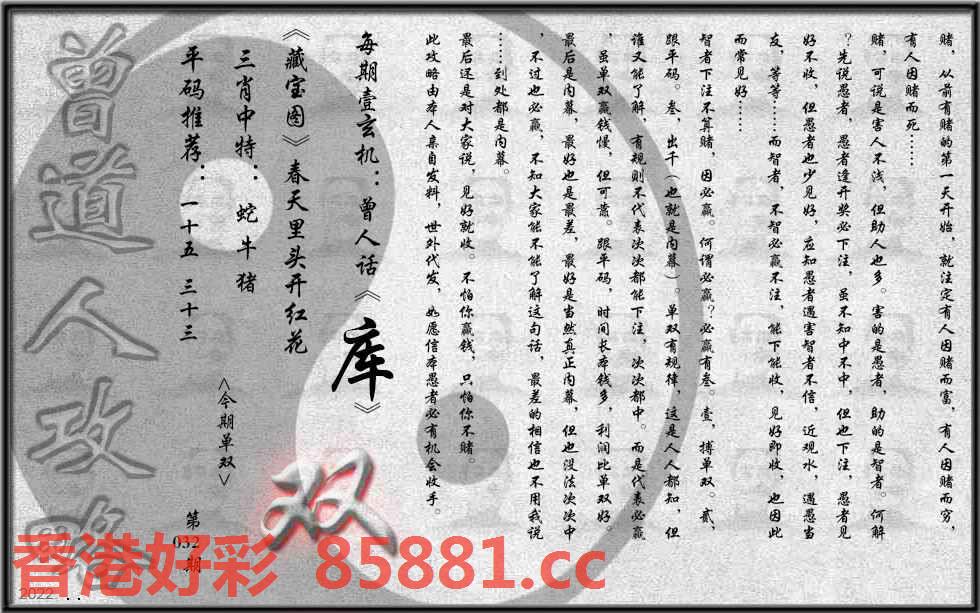 赌，从前有赌的第一天开始，就注定有人因赌而富，有人因赌而穷，
有人因赌而死……
赌，可说是害人不浅，但助人也多。害的是愚者，助的是智者。何解
？先说愚者，愚者逢开奖必下注，虽不知中不中，但也下注，愚者见
好不收，但愚者也少见好，应知愚者遇害智者不信，近观水，遇愚当
友，等等……而智者，不智必赢不注，能下能收，见好即收，也因此
而常见好……
智者下注不算赌，因必赢。何谓必赢？必赢有叁。壹，搏单双。贰，
跟平码。叁，出千（也就是内幕）。单双有规律，这是人人都知，但
谁又能了解，有规则不代表次次都能下注，次次都中。而是代表必赢
，虽单双赢钱慢，但可靠。跟平码，时间长本钱多，利润比单双好。
最后是内幕，最好也是最差，最好是当然真正内幕，但也没法次次中
，不过也必赢，不知大家能不能了解这句话，最差的相信也不用我说
……到处都是内幕。
最后还是对大家说，见好就收。不怕你赢钱，只怕你不赌。
此攻略由本人亲自发料，世外代发，如愿信本愚者必有机会收手。
每期壹玄机：曾人话《库》
《藏宝图》春天里头开红花
三肖中特：蛇牛猪
平码推荐：一十五 三十三
<今期单双>
双
第032期
曾道人攻略
香港好彩 85881.cc
2022